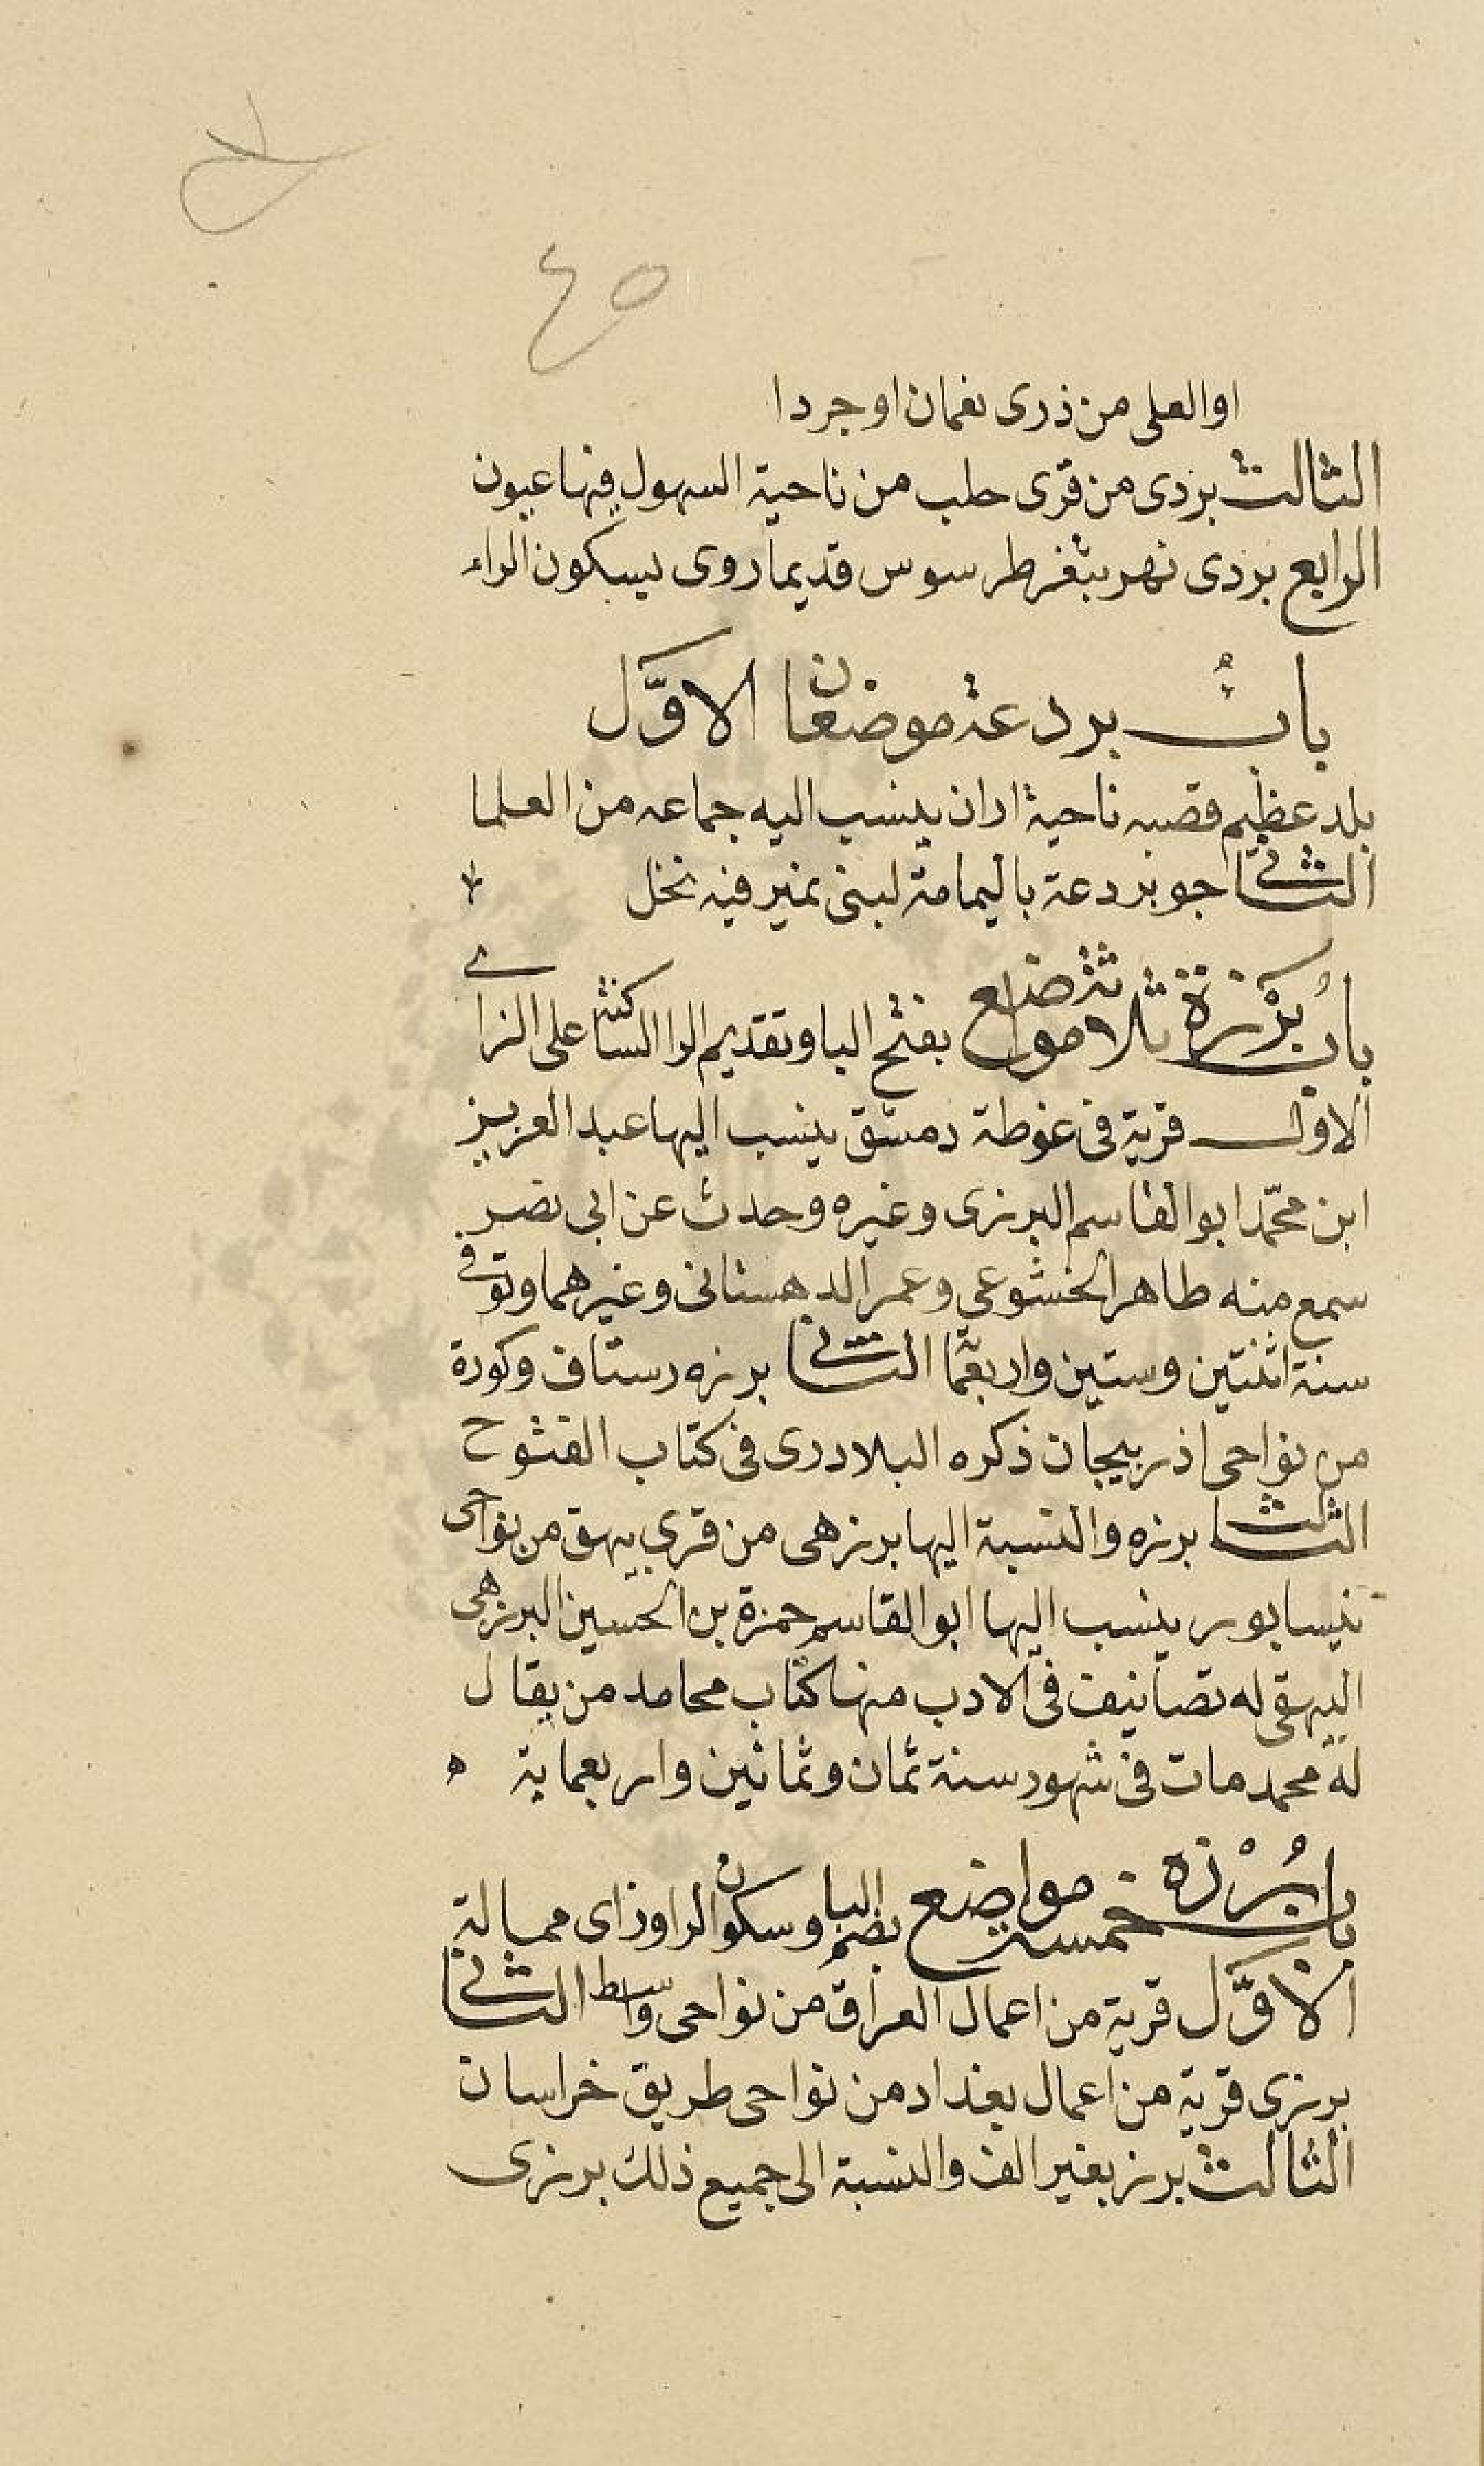 ٤٥
او العلى من ذرى نعمان اوجردا
الثالث بردى من قرى حلب من ناحية السهول فيها عيون
الرابع بردى نهر بثغر طرسوس قديما روى بسكون الراء
باب بردعة موضعان الاوّل
بلد عظيم قصبه ناحية اران ينسب اليه جماعه من العلما
الثاني جو بردعة باليمامة لبنى نمير فيه نخل
باب بَرْزة ثلاثة مواضع بفتح البا وتقديم الرا الساكنة على الزاي
الاول قرية فى غوطة دمشق ينسب اليها عبد العزيز
ابن محمّد ابو القاسم البرزى وغيره وحدث عن ابى نصر
سمع منه طاهر الخشوعى وعمر الدهستانى وغيرهما وتوفي
سنة اثنتين وستين واربعما الثاني برزه رستاق وكورة
من نواحى اذربيجان ذكره البلادرى فى كتاب الفتوح
الثالث برزه والنسبة اليها برزهى من قرى بيهق من نواحى
نيسابور ينسب اليها ابو القاسم حمزة بن الحسين البرزهى
البيهقى له تصانيف فى الادب منها كتاب محامد من يقال
له محمد مات فى شهور سنة ثمان وثمانين واربعماية ه
باب بُرْزه خمسة مواضع بضم البا وسكون الرا وزاى ممالة
الاوّل قرية من اعمال العراق من نواحى واسط الثاني
برزى قرية من اعمال بغداد من نواحى طريق خراسان
الثالث برز بغير الف والنسبة الى جميع ذلك برزى